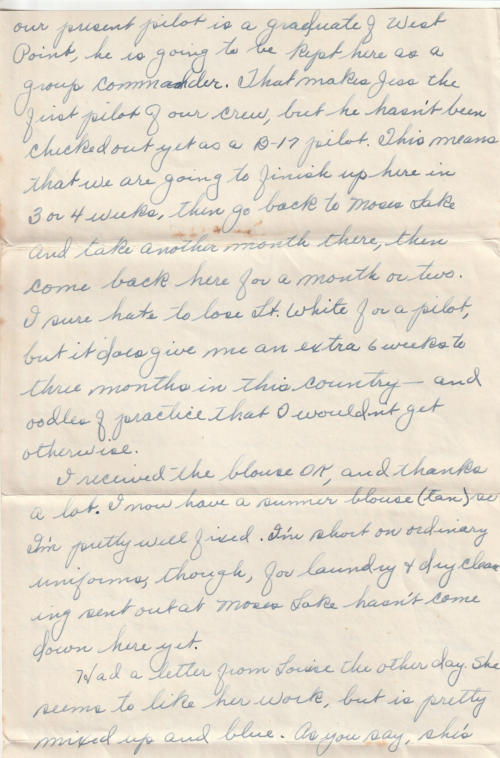 our present pilot is a graduate of West
Point, he is going to be kept here as a
group commander. That makes Jess the
first pilot of our crew, but he hasn't been
checked out yet as a B-17 pilot. This means
that we are going to finish up here in
3 or 4 weeks, then go back to Moses Lake
and take another month there, then
come back here for a month or two.
I sure hate to lose Lt. White for a pilot,
but it does give me an extra 6 weeks to
three months in this country — and
oodles of practice that I wouldn't get
otherwise.
I received the blouse OK, and thanks
a lot. I now have a summer blouse (tan) so
I'm pretty well fixed. I'm short on ordinary
uniforms, though, for laundry & dry clean
ing sent out at Moses Lake hasn't come
down here yet.
Had a letter from Louise the other day. She
seems to like her work, but is pretty
mixed up and blue. As you say, she's